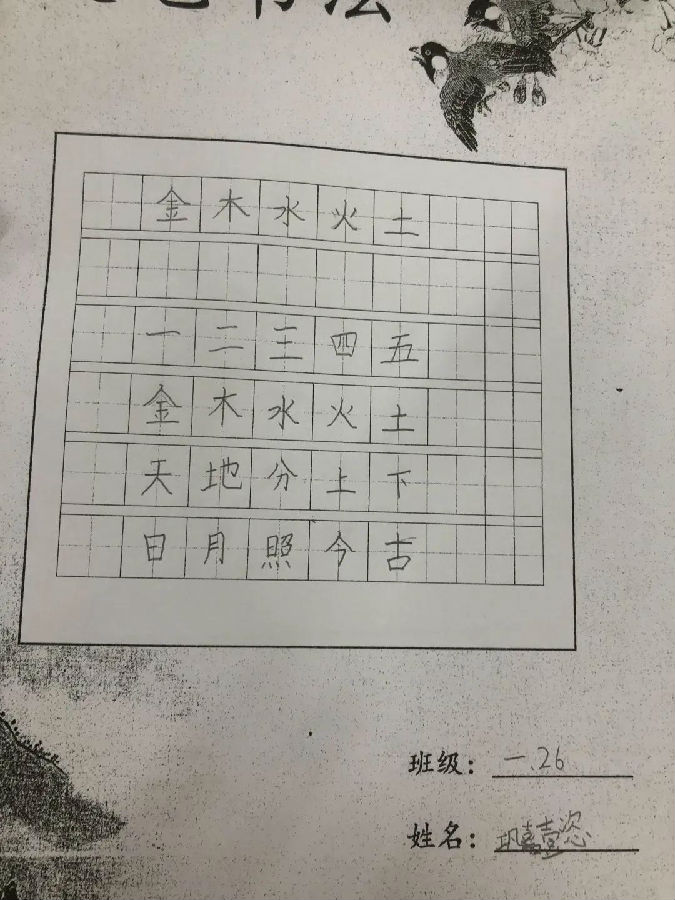 书法
金木水火土
一二三四五
金木水火土
天地分上下
日月照今古
班级：一.26
姓名：